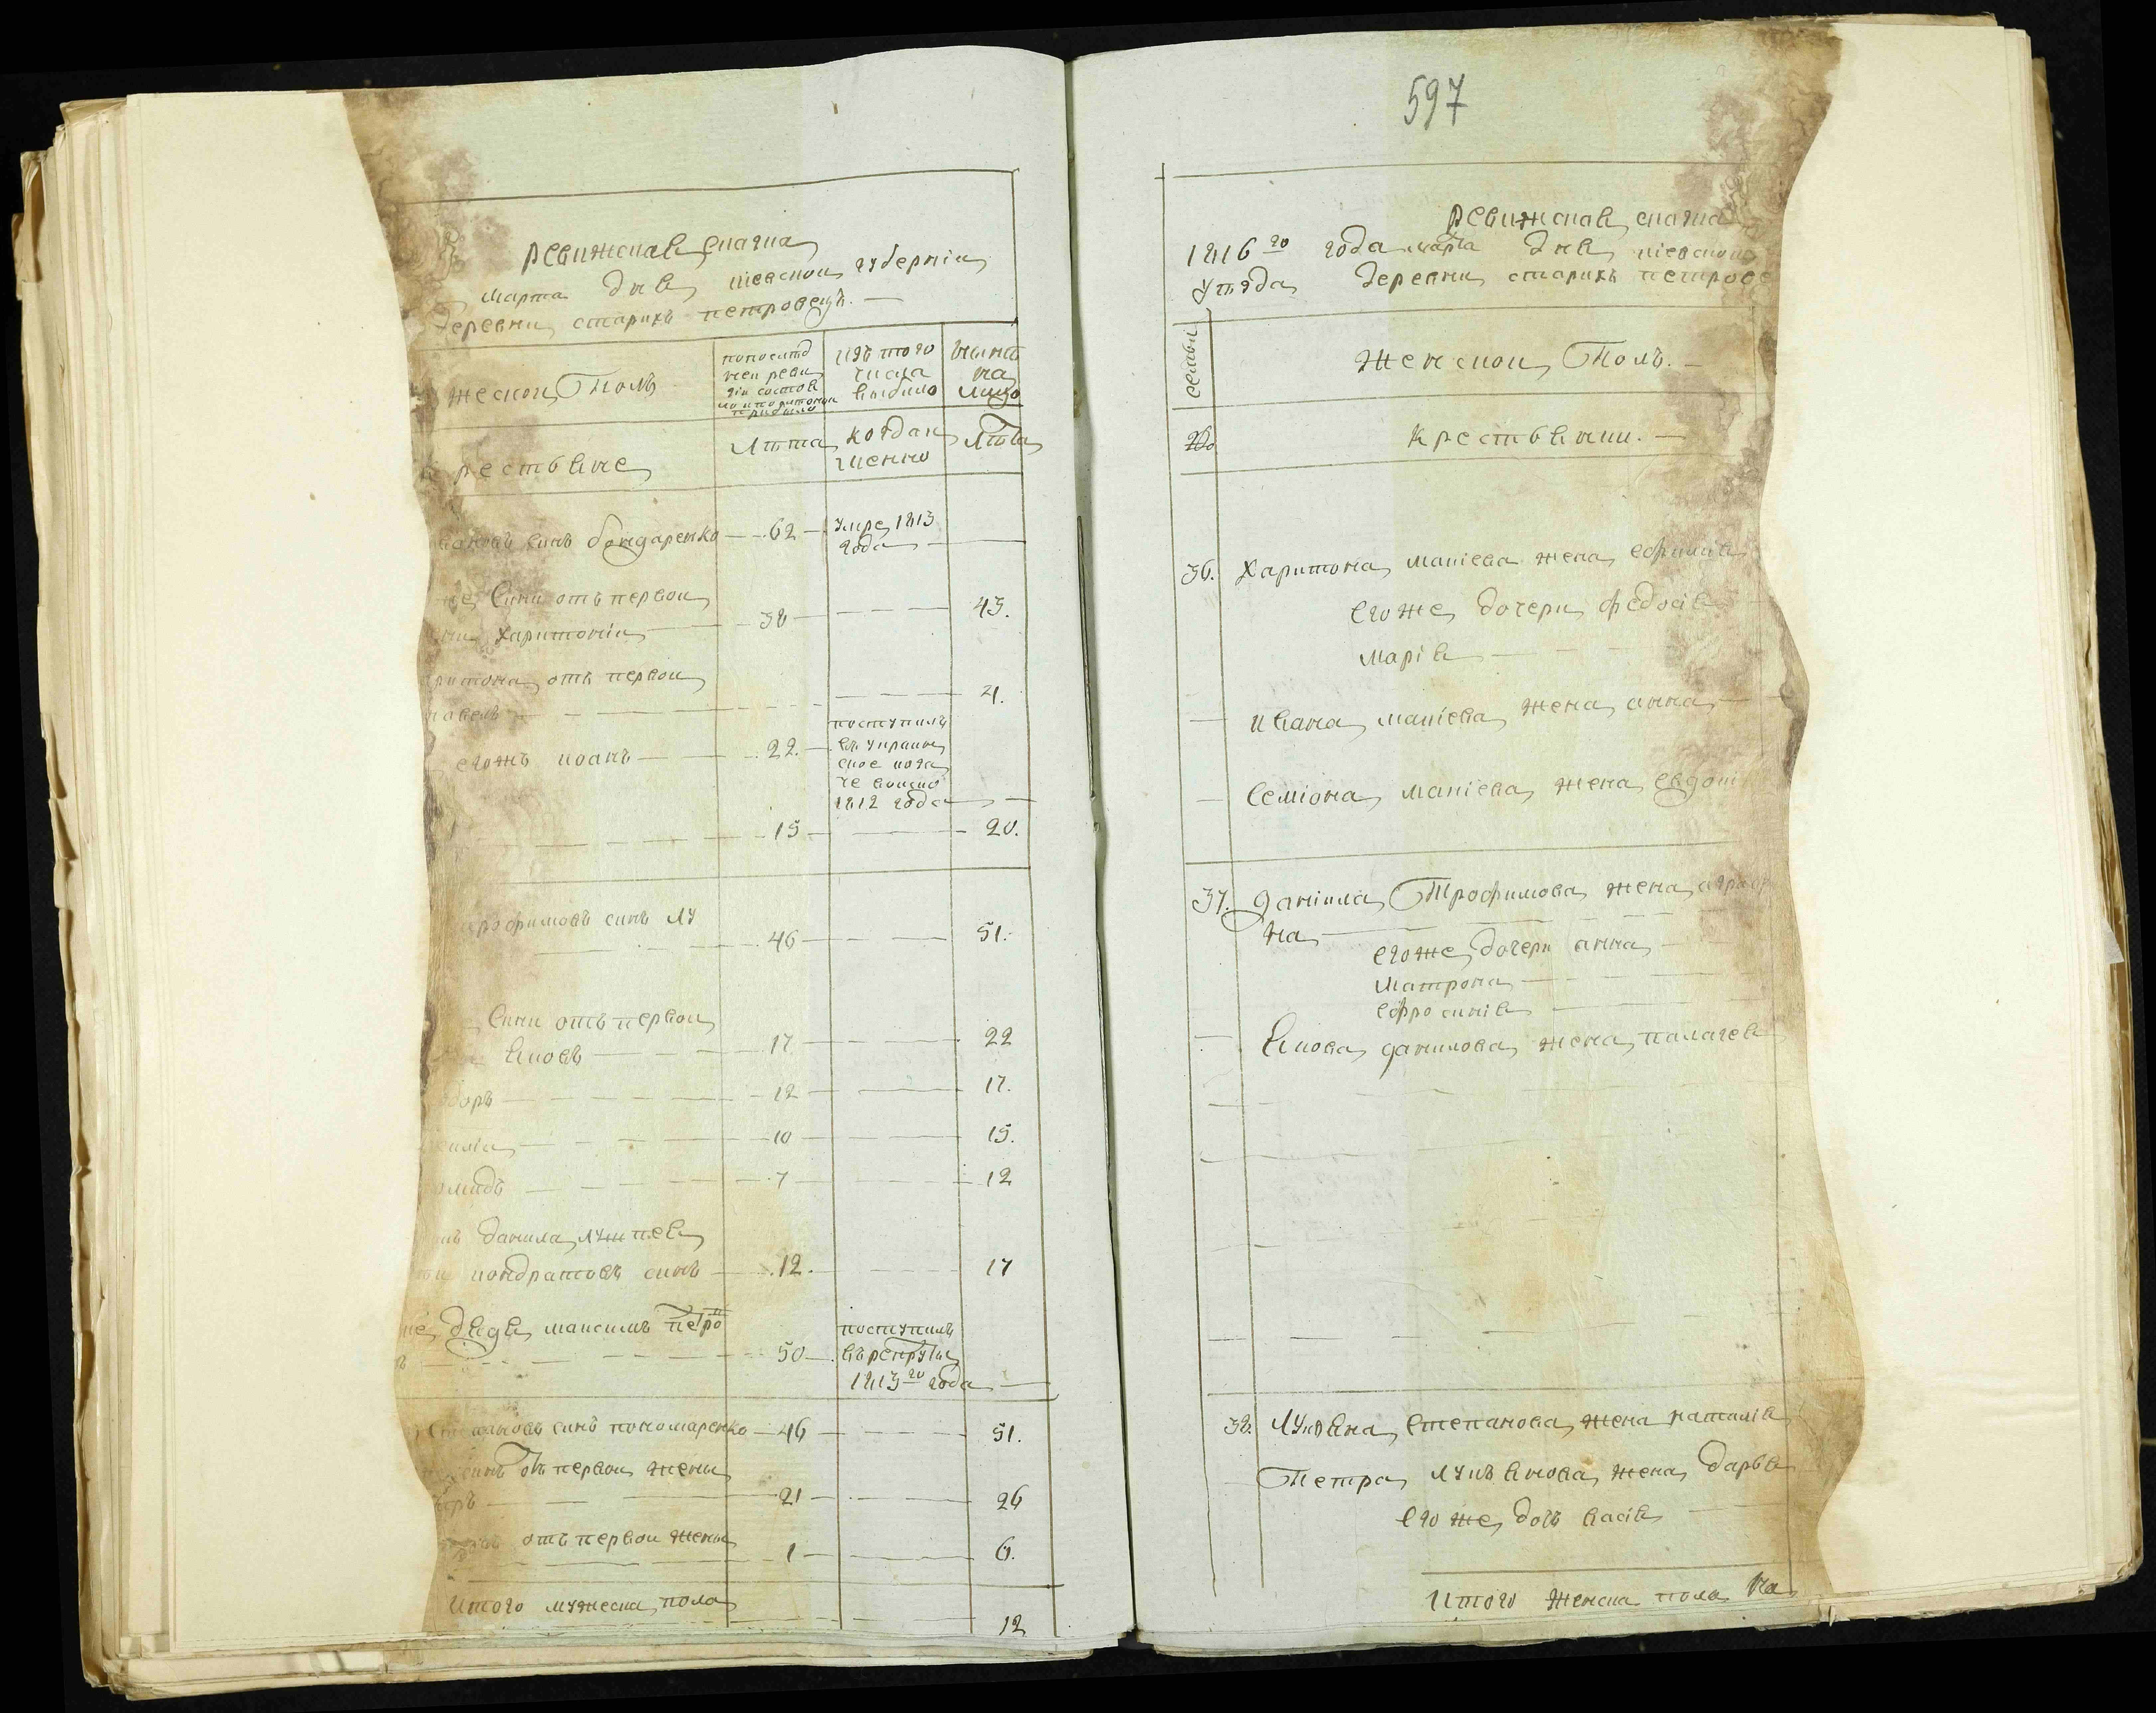 ревижская скаска
марта дня киевской губернии
деревни старихъ петровецъ.
жеской Полъ
попослед
ней реви
зіи состоя
ло и потомъ
прибыло
изъ того
числа
выбило
ныне
на
лицо
рестьяне
Лета
когда и
менно
Лета
вановъ синъ бондаренко 62
умре 1813
года
сини отъ первой
харитонъ 38 43.
ритона отъ первой
павелъ 4.
егожъ иоанъ 22.
поступилъ
въ украин
ское коза
че войско
1812 года
15 20.
трофимовъ синъ лу
46 51.
Сини отъ первой
Яковъ 17 22
12 17.
10 15.
7 12
данила лужпея
кондратовъ синъ 12. 17
дядя максимъ петро
50
поступилъ
въ рекруты
1813го года
степановъ синъ пономаренко 46 51.
синъ отъ первой жены
21 26
отъ первой жены
1 6.
Итого мужеска пола
12
597
Ревижская скаска
1816го года марта дня киевской
уезда деревни старихъ петрове
семьи
женской Полъ.
Крестьянки.
36. Харитона макіева жена ефимія
егоже дочери федосія
марія
ивана макіева жена анна
Семіона макіева жена евдоки
37. Даніила Трофимова жена аграф
на
егоже дочери анна
матрона
ефросинія
Якова данилова жена палагея
38. Лукяна степанова жена наталія
Петра лукьянова жена дарья
его же дочь васія
Итого женска пола на